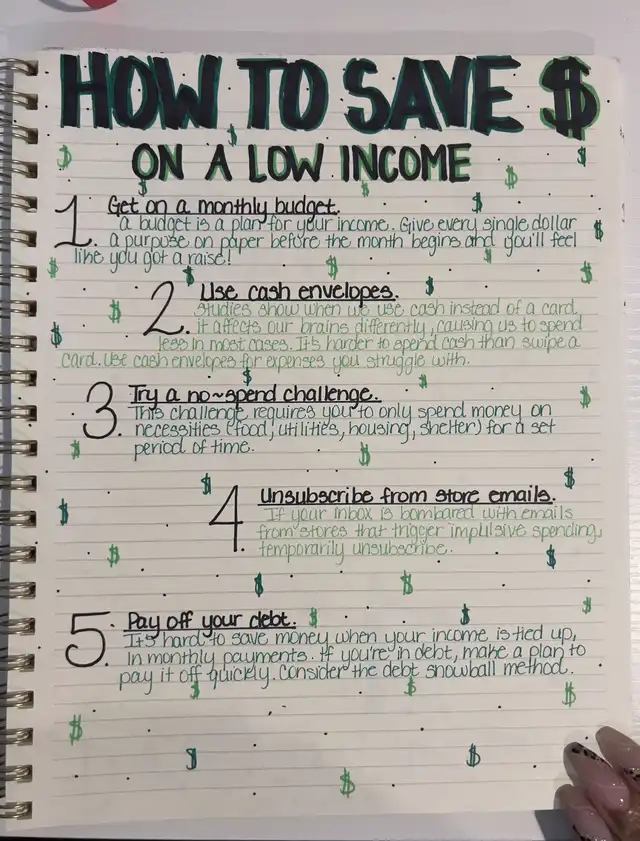 HOW TO SAVE $
ON A LOW INCOME
1. Get on a monthly budget.
A budget is a plan for your income. Give every single dollar
a purpose on paper before the month begins and you'll feel
like you got a raise!
2. Use cash envelopes.
Studies show when we use cash instead of a card,
it affects our brains differently, causing us to spend
less in most cases. It's harder to spend cash than swipe a
card. Use cash envelopes for expenses you struggle with.
3. Try a no~spend challenge.
This challenge requires you to only spend money on
necessities (food, utilities, housing, shelter) for a set
period of time.
4. Unsubscribe from store emails.
If your inbox is bombared with emails
from stores that trigger impulsive spending,
temporarily unsubscribe.
5. Pay off your debt.
It's hard to save money when your income is tied up,
in monthly payments. If you're in debt, make a plan to
pay it off quickly. Consider the debt snowball method.